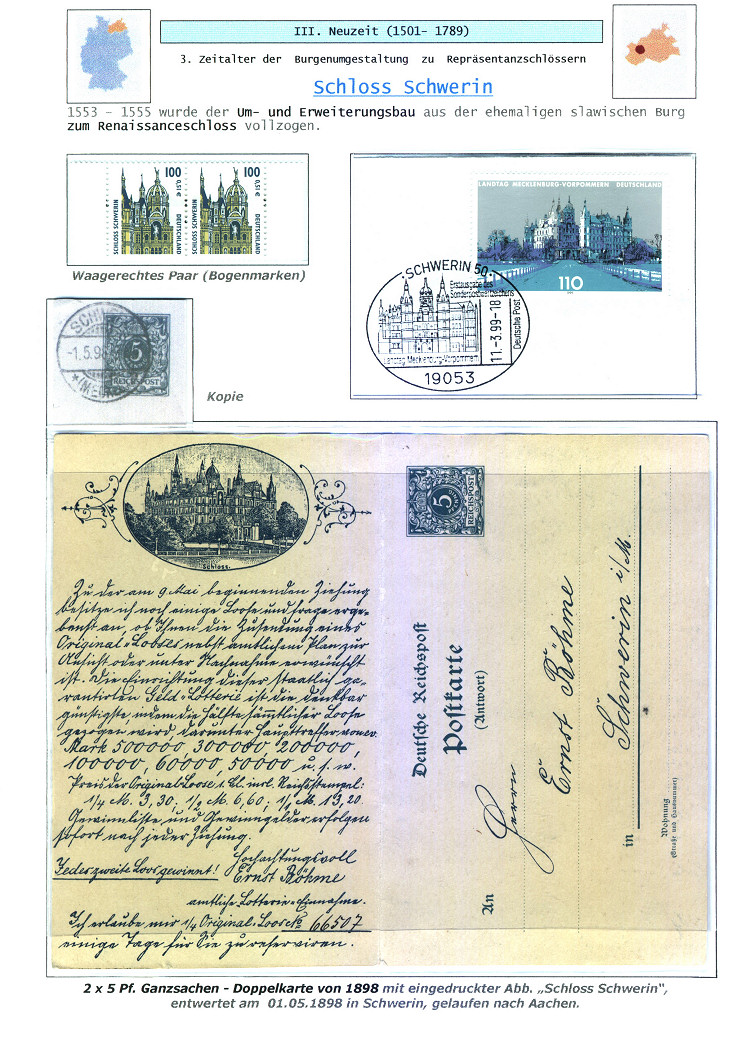 III. Neuzeit (1501- 1789)
3. Zeitalter der Burgenumgestaltung zu Repräsentanzschlössern
Schloss Schwerin
1553 – 1555 wurde der Um- und Erweiterungsbau aus der ehemaligen slawischen Burg
zum Renaissanceschloss vollzogen.
100
0,51 €
SCHLOSS SCHWERIN
DEUTSCHLAND
100
0,51 €
SCHLOSS SCHWERIN
DEUTSCHLAND
Waagerechtes Paar (Bogenmarken)
LANDTAG MECKLENBURG-VORPOMMERN DEUTSCHLAND
110
SCHWERIN 50
Erstausgabe des
Sonderpostwertzeichens
Landtag Mecklenburg-Vorpommern
11.-3.99-18
Deutsche Post
19053
SCHW
-1.5.98
*(MECK
5
REICHSPOST
Kopie
Schloss.
Zu der am 9 Mai beginnenden Ziehung
besitze ich noch einige Loose und frage erge-
benst an, ob Ihnen die Zusendung eines
Original-Looses nebst amtlichem Plan zur
Ansicht oder unter Nachnahme erwünscht
ist. Die Einrichtung dieser staatlich ga-
rantirten Geld-Lotterie ist die denkbar
günstigste indem die Hälfte sämtlicher Loose
gezogen wird, darunter Haupttreffer von ev.
Mark 500000, 300000, 200000,
100000, 60000, 50000 u. s. w.
Preis der Original-Loose 1. Cl. incl. Reichsstempel:
1/4 M. 3,30; 1/2 M. 6,60; 1/1 M. 13,20
Gewinnliste und Gewinngelder erfolgen
sofort nach jeder Ziehung.
Hochachtungsvoll
Jedes zweite Loos gewinnt! Ernst Böhme
amtliche Lotterie-Einnahme.
Ich erlaube mir 1/4 Original-Loos No 66507
einige Tage für Sie zu reserviren.
5
REICHSPOST
Deutsche Reichspost
Postkarte
(Antwort)
An Herrn
Ernst Böhme
in Schwerin i/M.
Wohnung
(Straße und Hausnummer)
2 x 5 Pf. Ganzsachen - Doppelkarte von 1898 mit eingedruckter Abb. „Schloss Schwerin",
entwertet am 01.05.1898 in Schwerin, gelaufen nach Aachen.